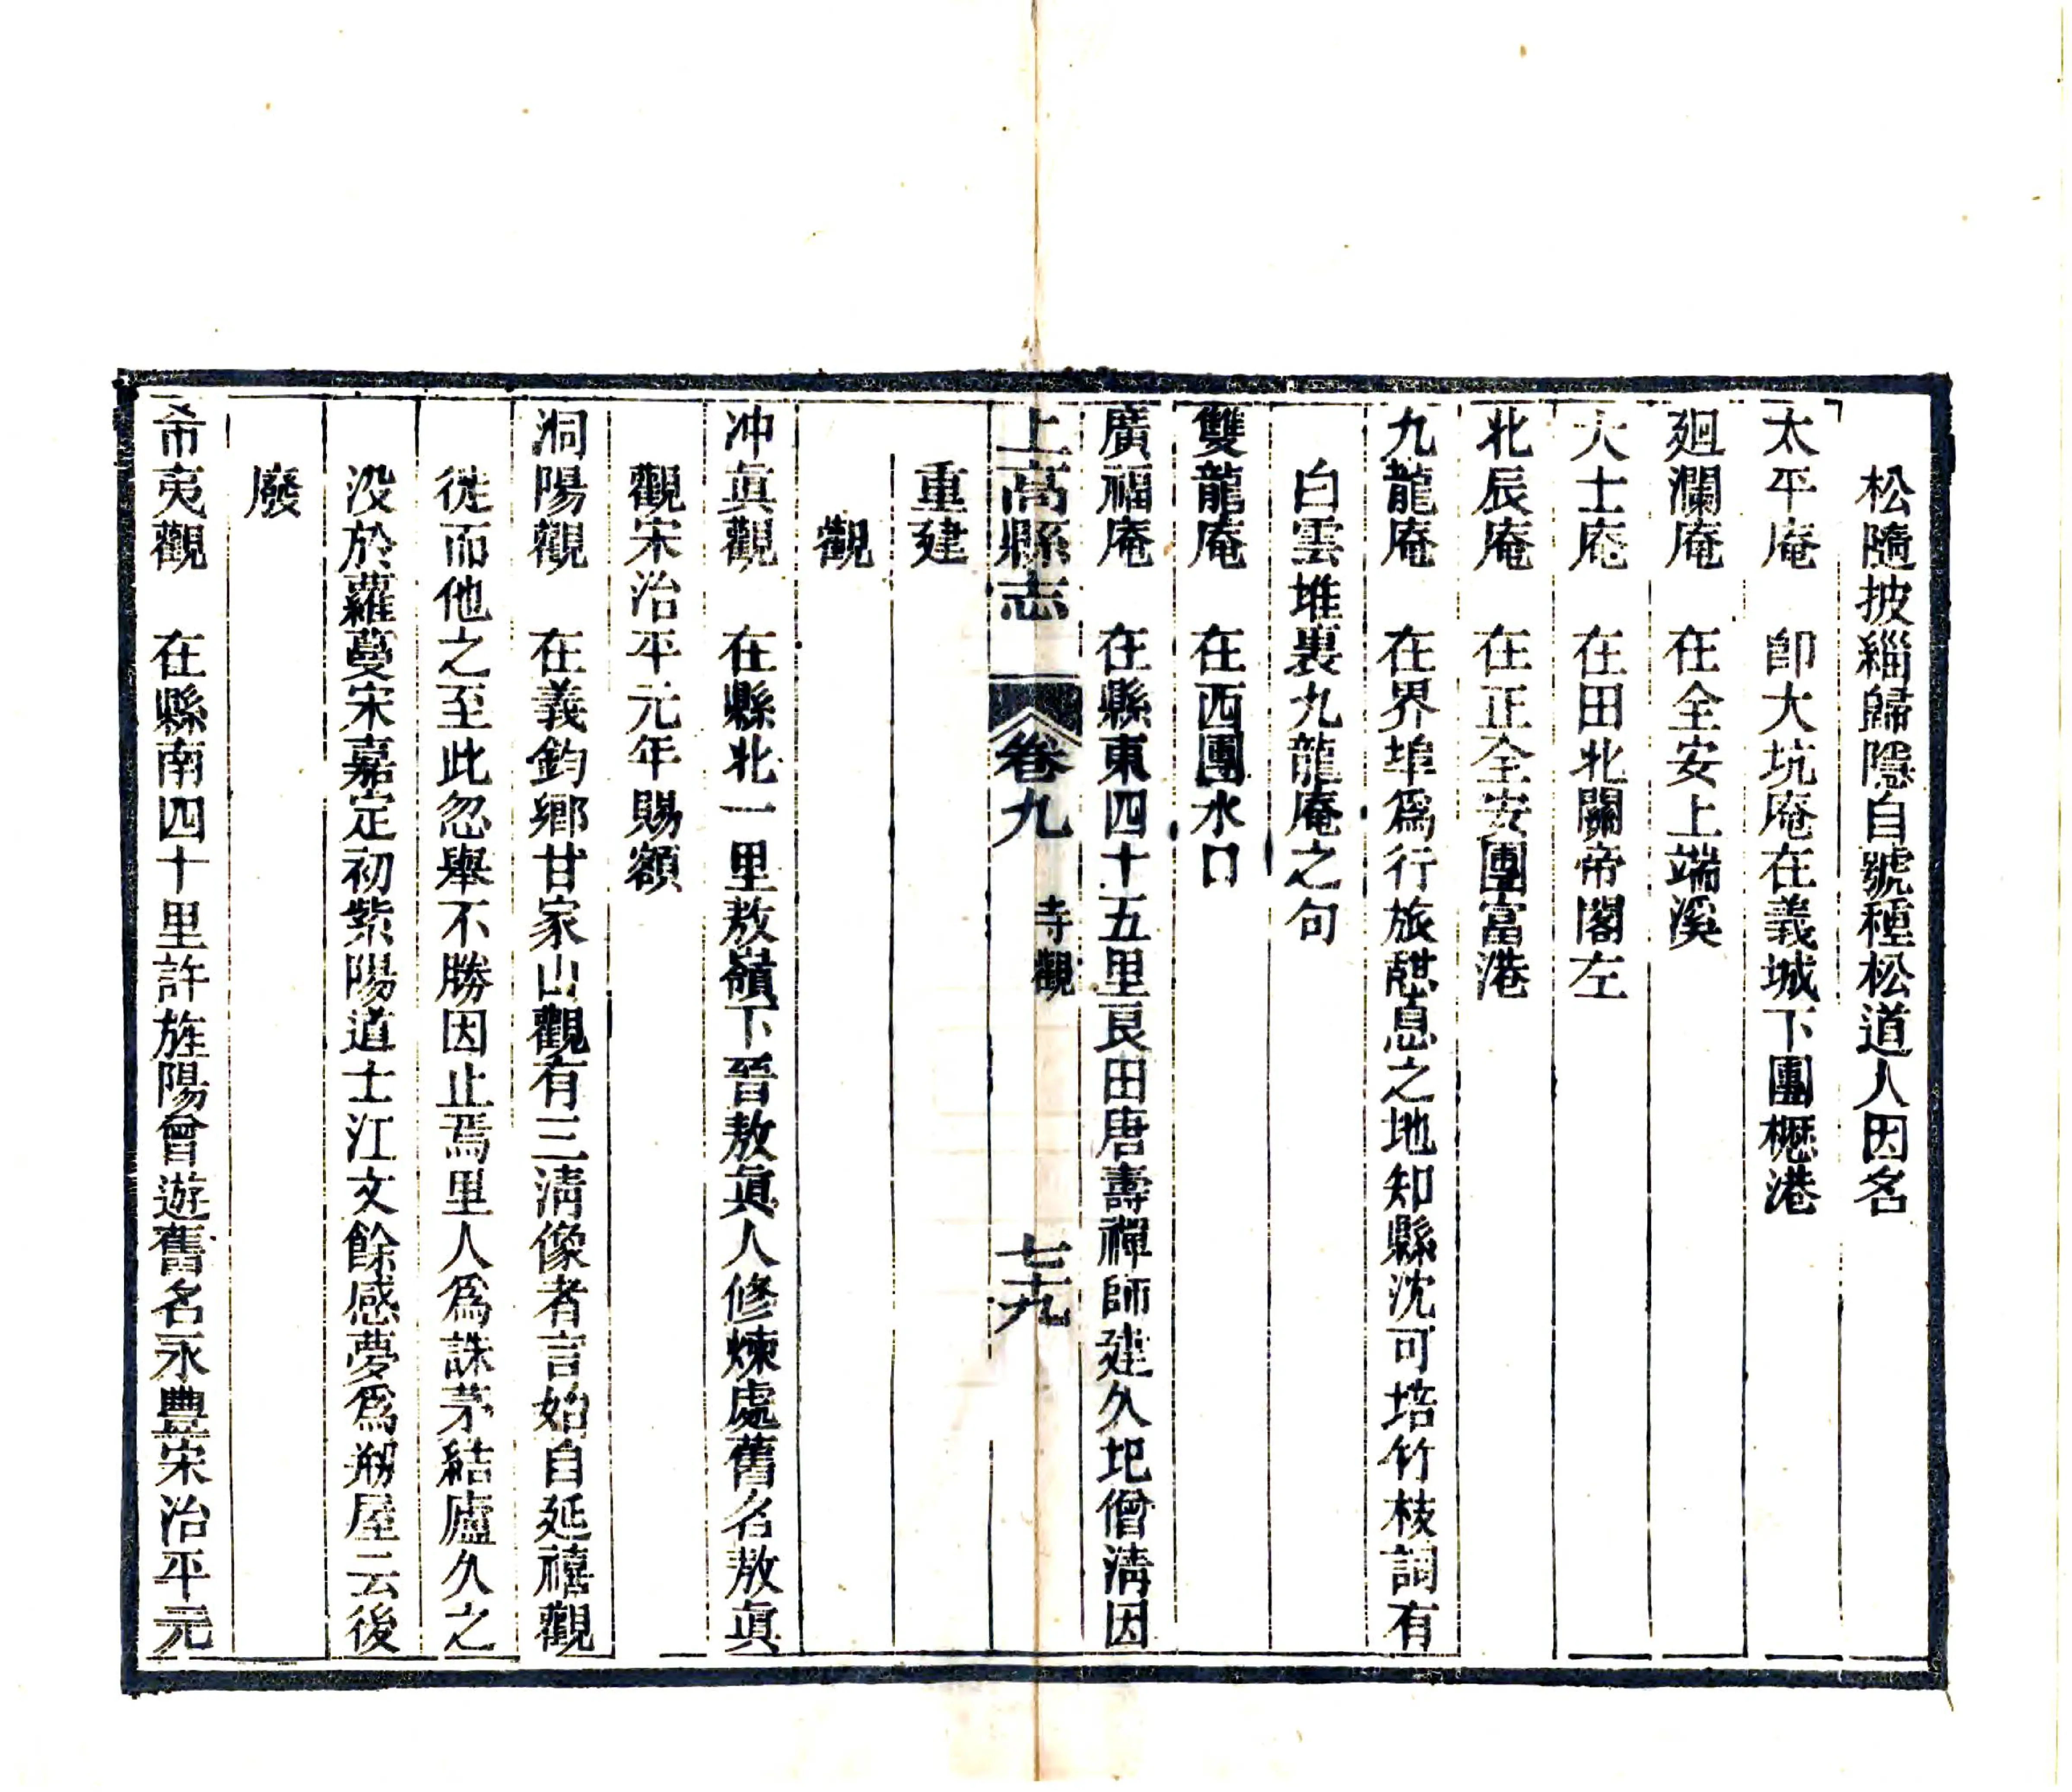 松隨披緇歸隱自號種松道人因名
太平庵　即大坑庵在義城下團櫪港
廻瀾庵　在全安上端溪
大士庵　在田北關帝閣左
北辰庵　在正全安團富港
九龍庵　在界埠爲行旅憇息之地知縣沈可培竹枝詞有
白雲堆裏九龍庵之句
雙龍庵　在西團水口
廣福庵　在縣東四十五里艮田唐壽禪師建久圯僧淸因
上高縣志　卷九　寺觀　七十九
重建
觀
冲眞觀　在縣北一里敖嶺下晉敖眞人修煉處舊名敖眞
觀宋治平元年賜額
洞陽觀　在義鈞鄉甘家山觀有三淸像者言始自延禧觀
從而他之至此忽舉不勝因止焉里人爲誅茅結廬久之
沒於蘿蔓宋嘉定初紫陽道士江文餘感夢爲剏屋云後
廢
希夷觀　在縣南四十里許旌陽曾遊舊名永豐宋治平元